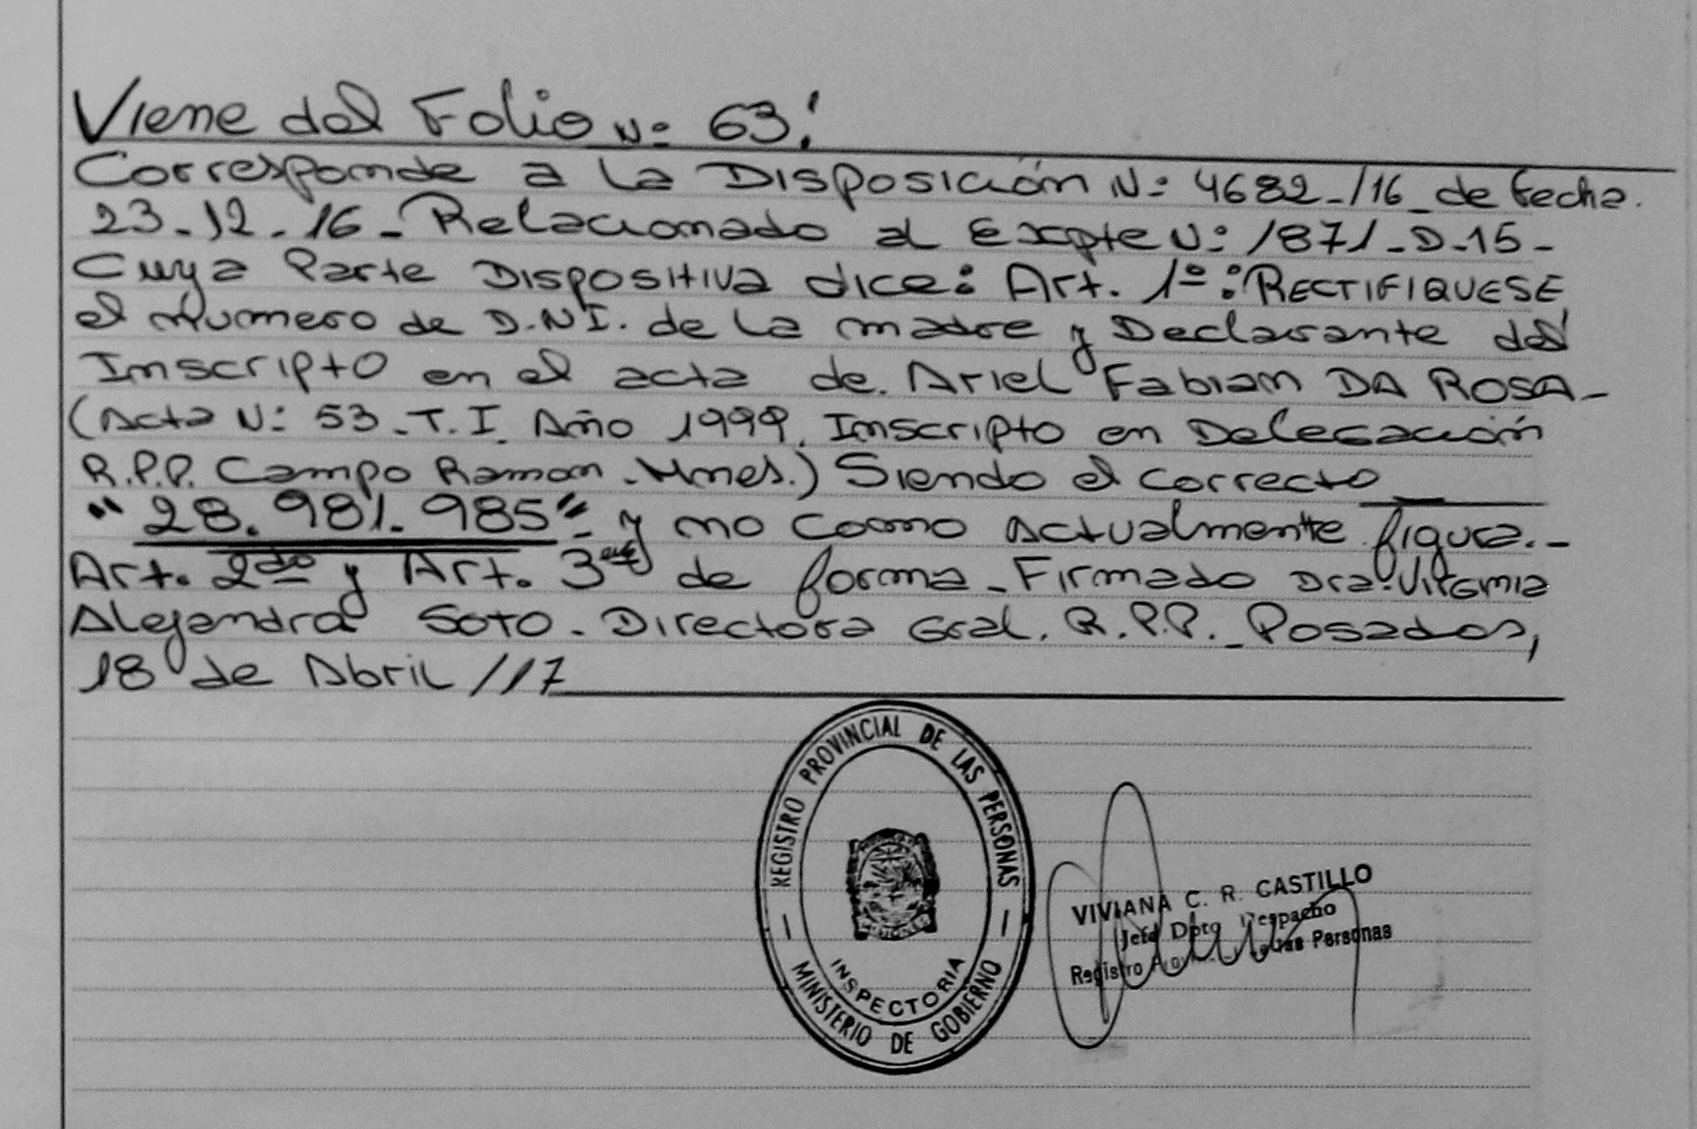 Viene del Folio Nº 63!
Corresponde a la Disposición Nº 4682-/16 de fecha.
23-12-16- Relacionado al Expte Nº 1871-D-15-
Cuya Parte Dispositiva dice: Art. 1º: RECTIFIQUESE
el numero de D.N.I. de la madre y Declarante del
Inscripto en el acta de. Ariel Fabian DA ROSA-
(Acta Nº 53-T.I. Año 1999. Inscripto en Delegación
R.P.P. Campo Ramon-Mnes.) Siendo el correcto
"28.981.985" y no como actualmente figura.-
Art. 2do y Art. 3ero de forma-Firmado Dra. Virginia
Alejandra Soto. Directora Gral. R.P.P.- Posadas,
18 de Abril /17
REGISTRO PROVINCIAL DE LAS PERSONAS
INSPECTORIA
MINISTERIO DE GOBIERNO
VIVIANA C. R. CASTILLO
Jefe Dpto Despacho
Registro Personas